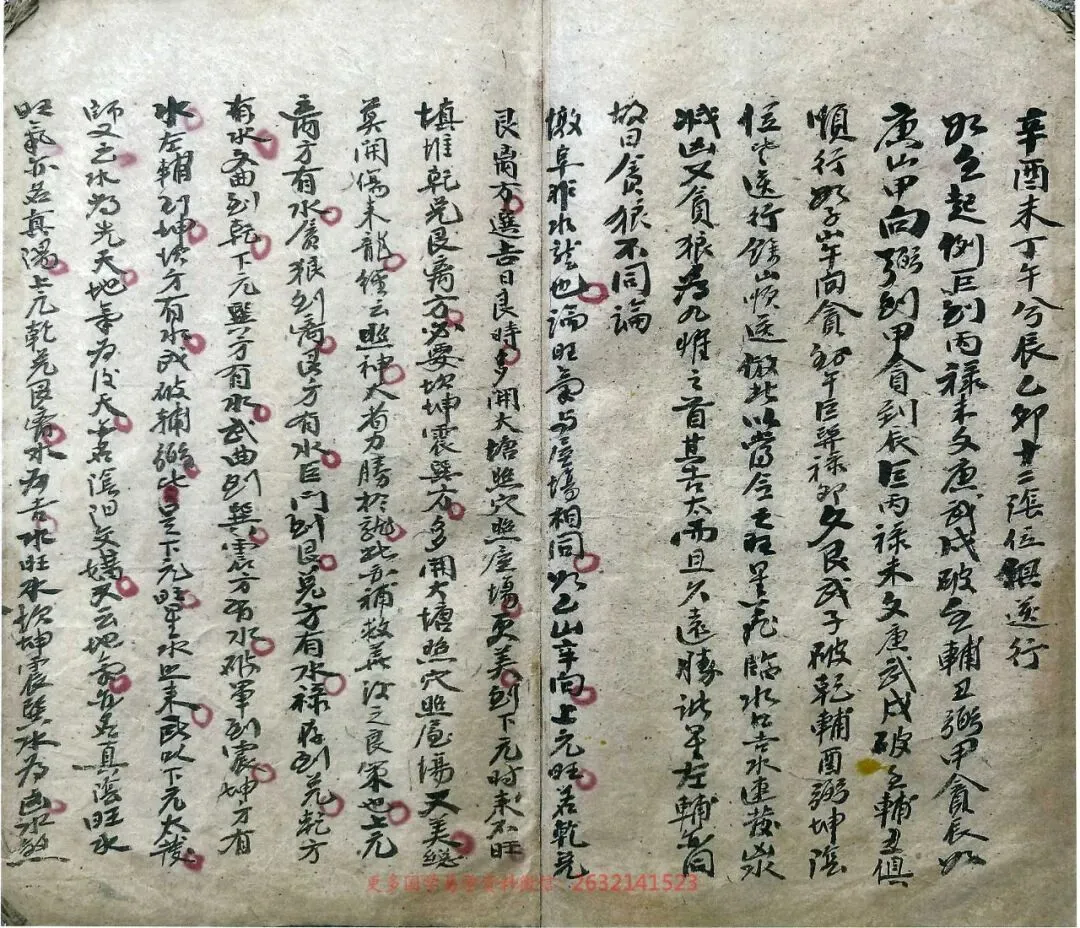 辛酉未丁午兮辰乙卯廿二張位俱逆行
如壬起例巨到丙禄未文庚武戌破壬輔丑弼甲貪辰如
庚山甲向弼到甲貪到辰巨丙禄未文庚武戌破壬輔丑俱
順行如子山午向貪到午巨巽禄卯文艮武子破乾輔酉弼坤陰
位逆行餘山順逆倣此以當令之旺星飛臨水口吉水速發凶水
减凶又貪狼為九惟之首其吉大而且久遠勝諸星左輔亦同
故曰貪狼不同論
墩阜非水龍也論旺氣與屋場相同以乙山辛向上元旺若乾兑
艮離方選吉日良時多用大塘照穴照屋塲更美到下元時來不旺
填堆乾兑艮离方必要坎坤震巽方多用大塘照穴照屋塲又美總
莫開傷來龍經云照神大有力勝於龍此亦補救無法之良策也上元
离方有水貪狼到离艮方有水巨门到艮兑方有水禄存到兑乾方
有水文曲到乾下元巽方有水武曲到巽震方有水破軍到震坤方有
水左輔到坤坎方有水武破輔弼此是下元旺星水与来路以下元大發
師又云水為先天地氣為後天若陰陽交媾又云地氣亦為真陰旺水
旺氣亦為真陽上元乾兑艮离水為吉水旺水坎坤震巽水為凶水煞
更多国学易学资料微信 2632141523